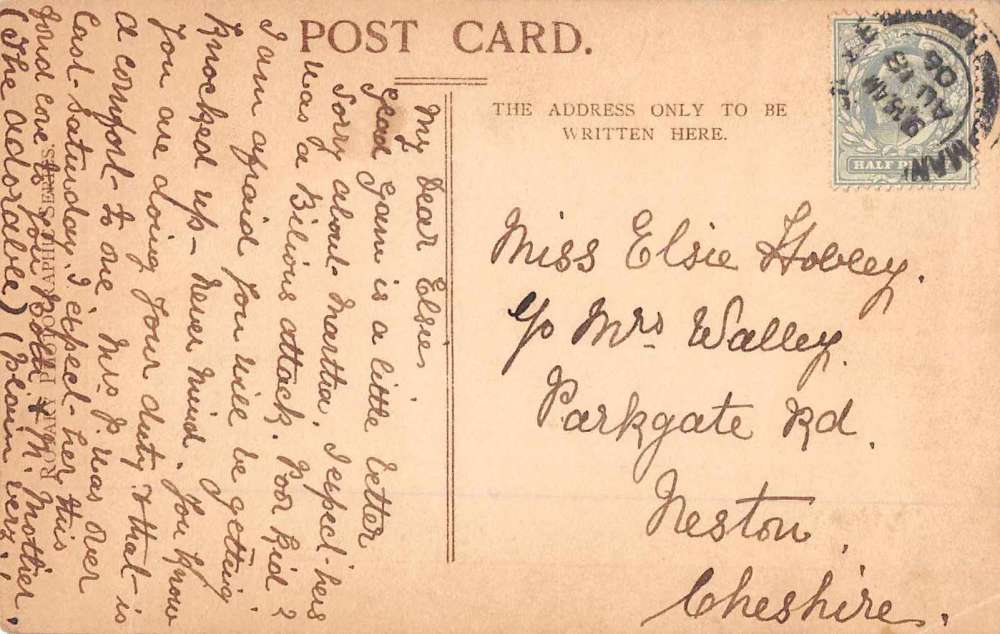 POST CARD.
THE ADDRESS ONLY TO BE
WRITTEN HERE.
HALF PE
MAN
9.15 AM
AU 13
06
My Dear Elsie,
glad Gam is a little better
Sorry about Martha. I expect hers
was a Bilious attack. Poor kid?
I am afraid you will be getting
knocked up – never mind. You know
you are doing your duty & that is
a comfort to one Mrs P. was over
last Saturday, I expect her this
fond love to you both. M. Mother
(The adorable)
Miss Elsie Hobley.
c/o Mrs Walley
Parkgate Rd.
Neston,
Cheshire.
ROTARY PHOTOGRAPHIC SERIES.